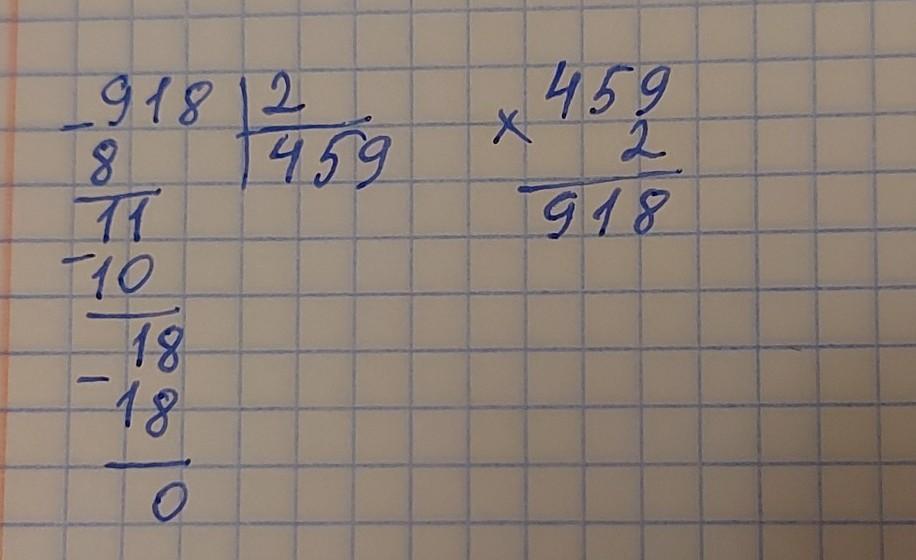 -918 | 2
8 | 459
11
-10
18
-18
0
× 459
2
918